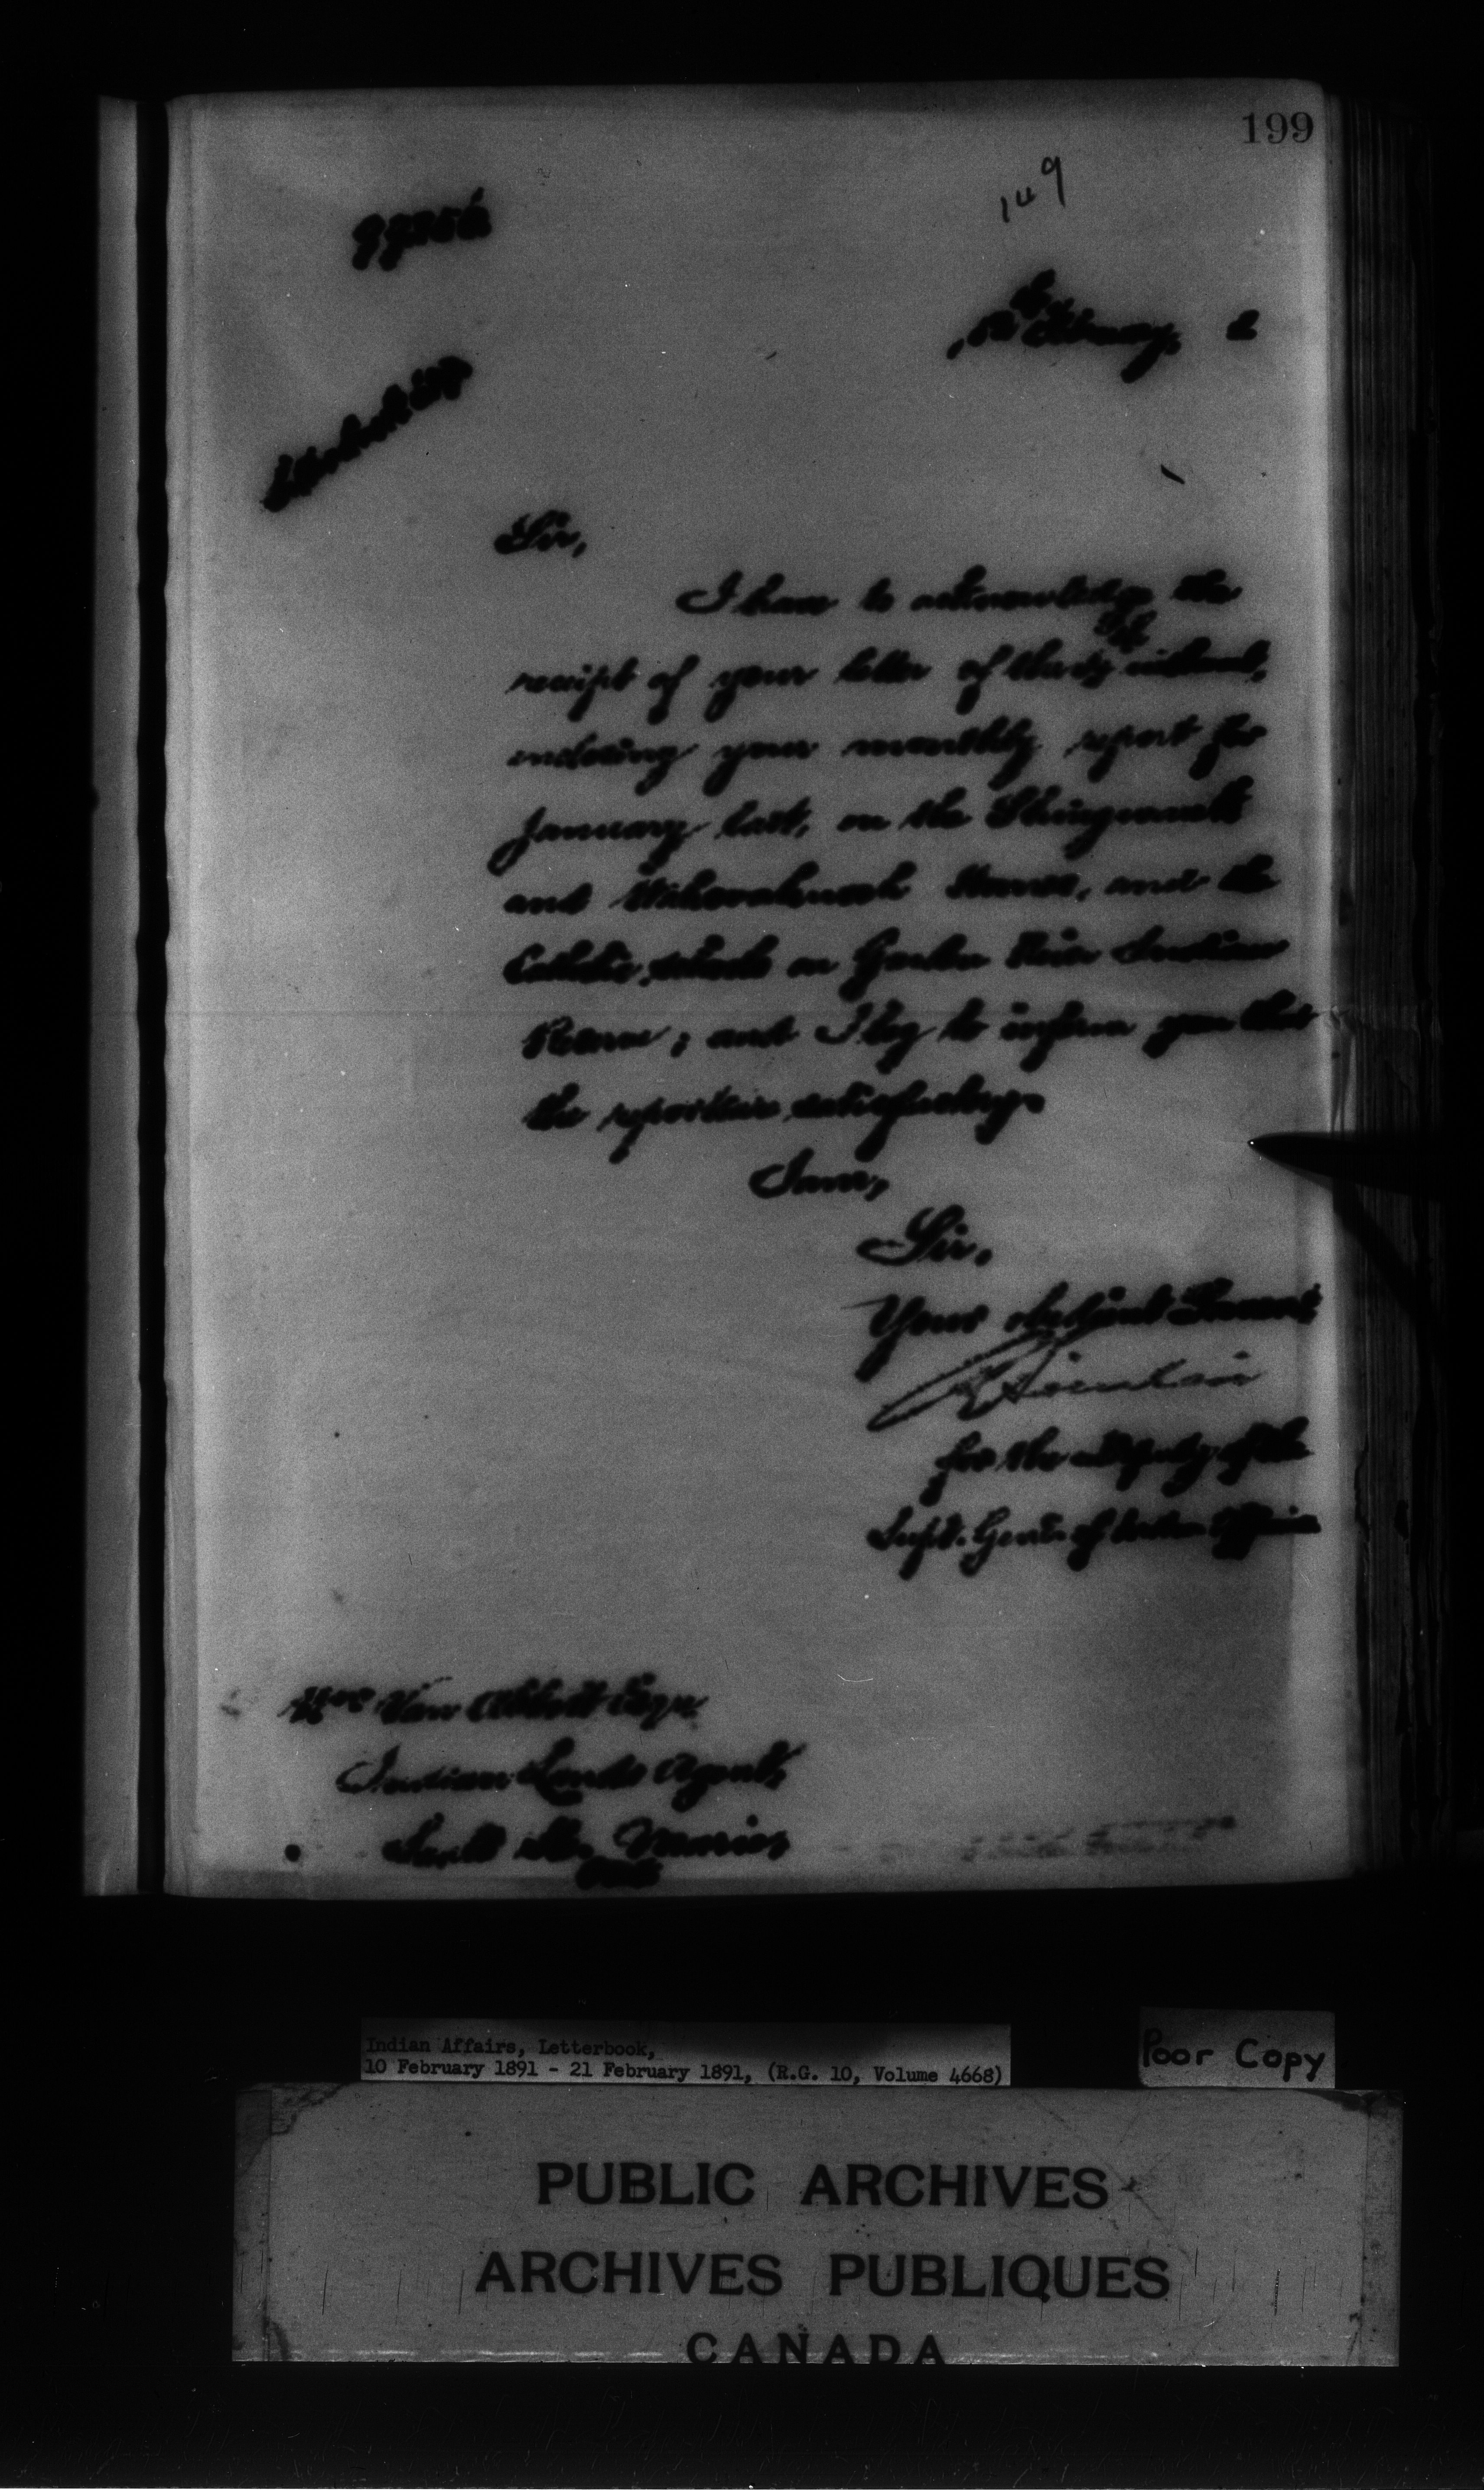 199
149
February
Sir,
I have to acknowledge the
receipt of your letter of the instant,
enclosing your monthly report for
January last, on the Shingwauk
and Wawanosh Homes, and the
Catholic schools on Garden River Indian
Reserve; and I beg to inform you that
the report is satisfactory.
I am,
Sir,
Your obedient Servant,
for the Deputy of the
Supt. Genl. of Indian Affairs
Wm Van Abbott Esqr.
Indian Lands Agent,
Sault Ste. Marie,
Ont.
Indian Affairs, Letterbook,
10 February 1891 - 21 February 1891, (R.G. 10, Volume 4668)
Poor Copy
PUBLIC ARCHIVES
ARCHIVES PUBLIQUES
CANADA